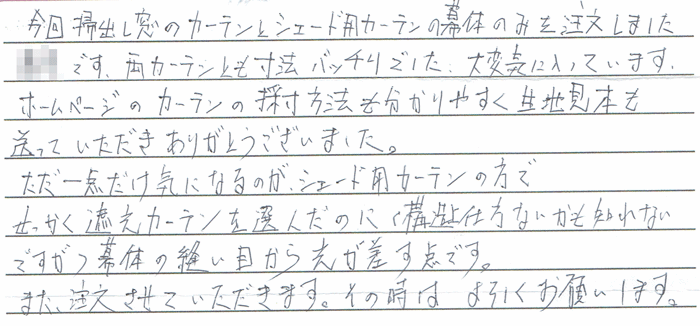 今回掃出し窓のカーテンとシェード用カーテンの幕体のみを注文しました
です。両カーテンとも寸法バッチリでした。大変気に入っています。
ホームページのカーテンの採寸方法も分かりやすく生地見本も
送っていただきありがとうございました。
ただ一点だけ気になるのが、シェード用カーテンの方で
せっかく遮光カーテンを選んだのに(構造上仕方ないかも知れない
ですが)幕体の縫い目から光が差す点です。
また、注文させていただきます。その時は よろしくお願いします。